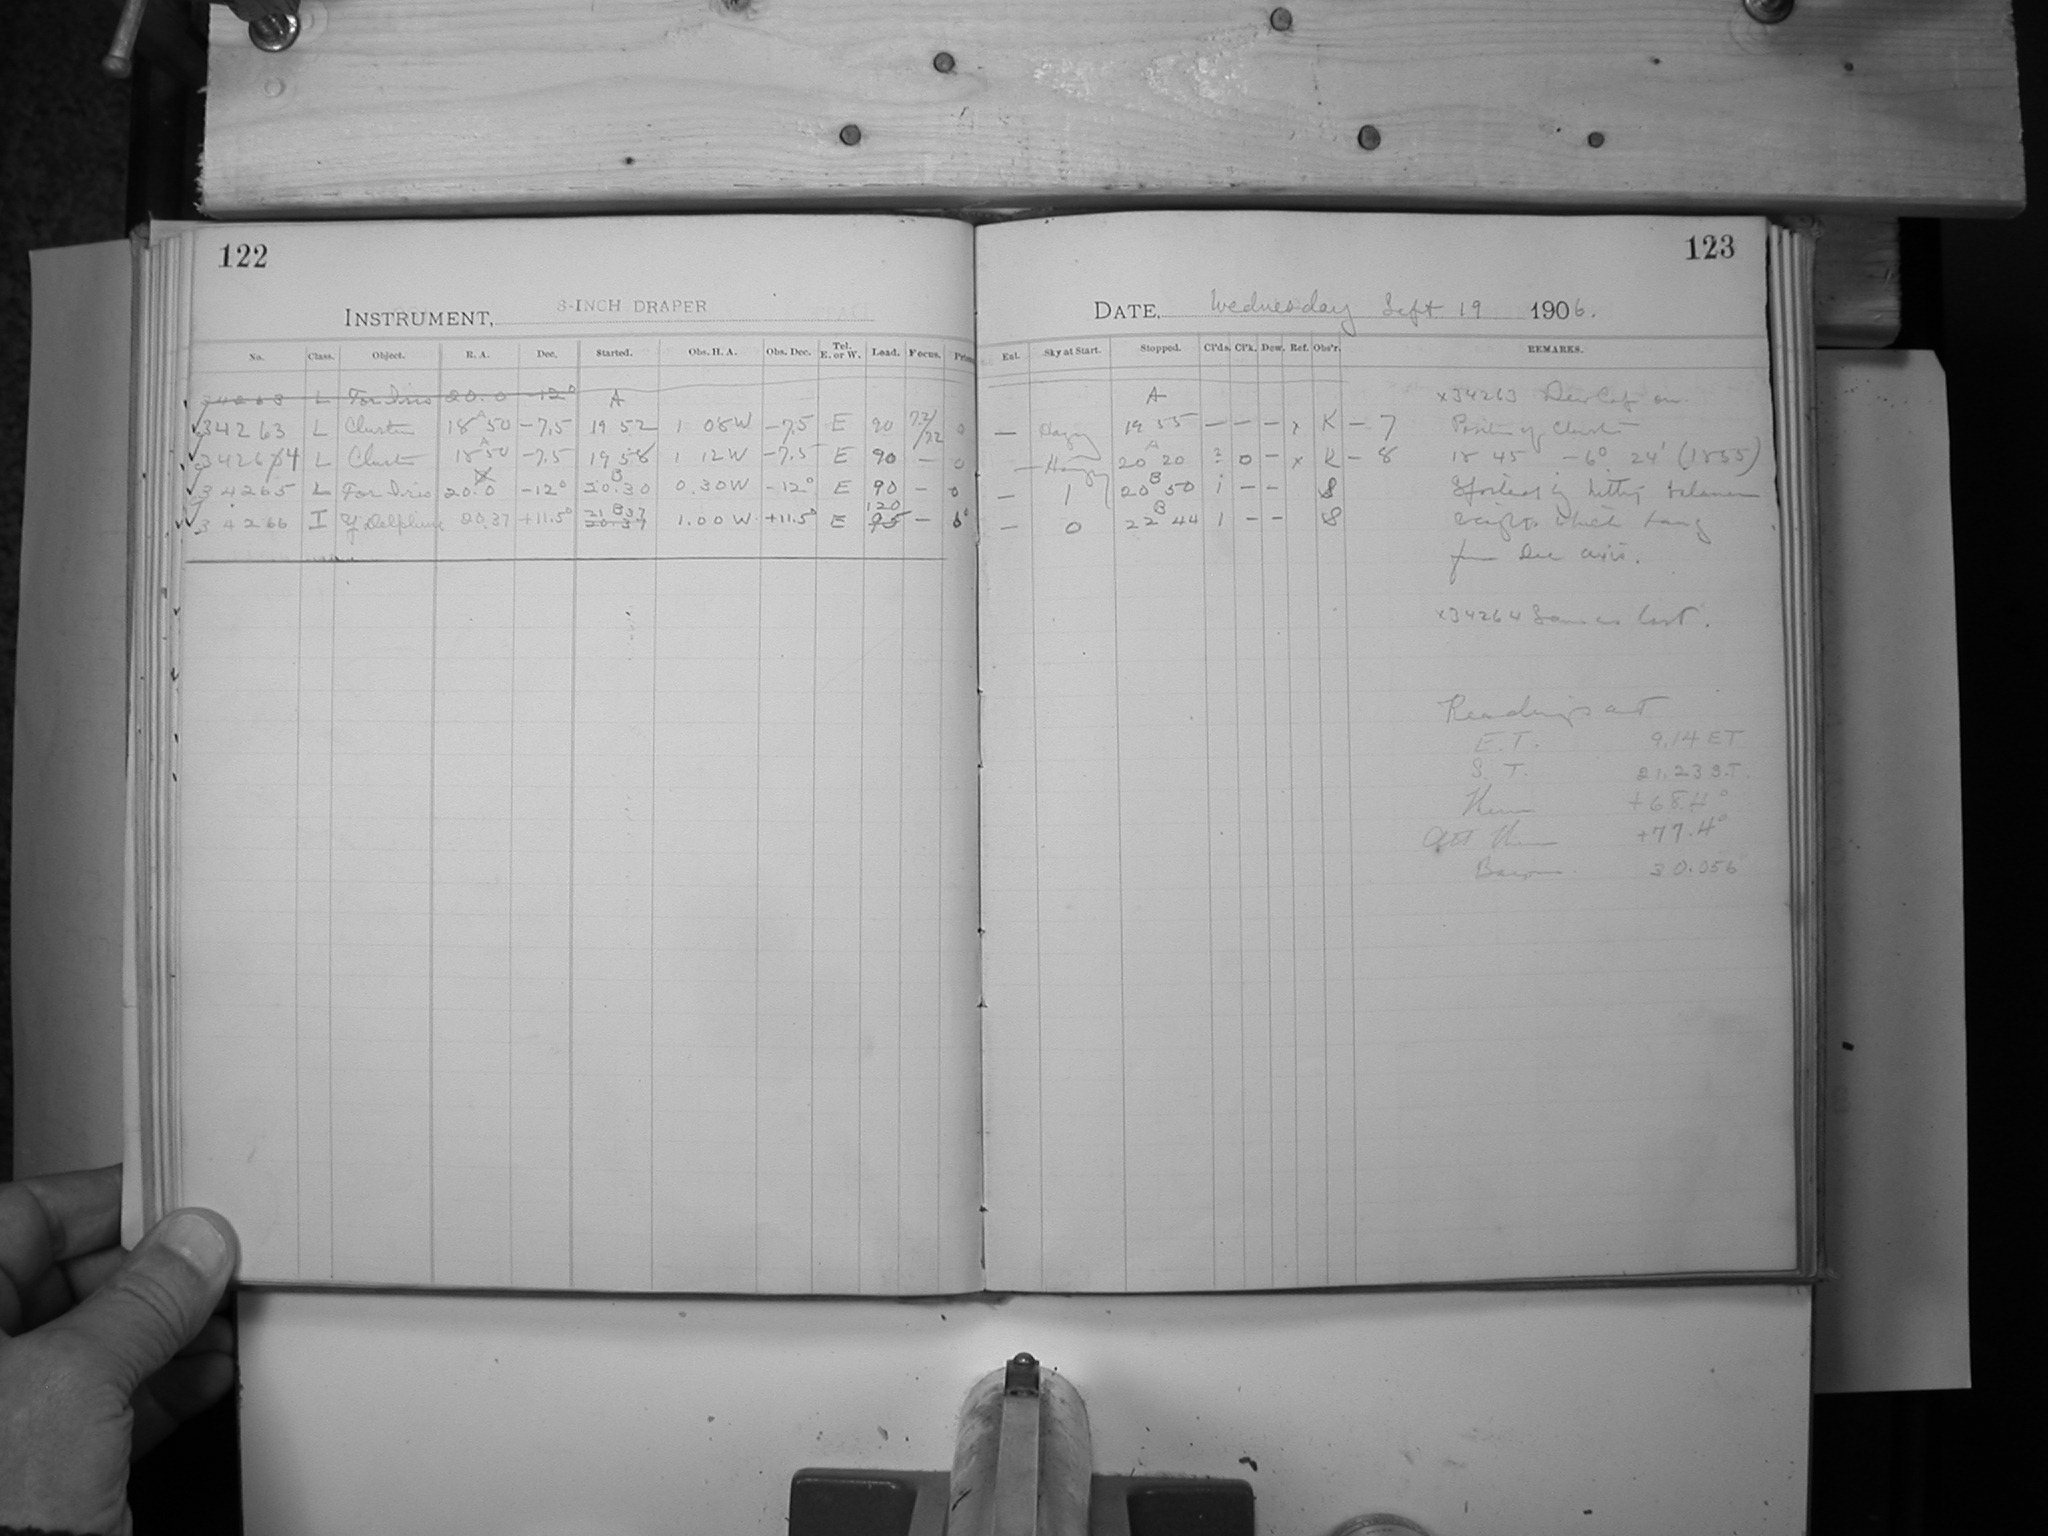 122
INSTRUMENT, 8-INCH DRAPER
No. Class. Object. R. A. Dec. Started. Obs. H. A. Obs. Dec. Tel. E. or W. Lead. Focus. Prism
34263 L For Iris 20.0 -12° A
34263 L Cluster 18 A 50 -7.5 19 52 1 08W -7.5 E 90 73/72 0
34264 L Cluster 18 A 50 -7.5 19 58 1 12W -7.5 E 90 - 0
34265 L For Iris 20.0 -12° 20 B 30 0.30W -12° E 90 - 0
34266 I Delphini 20.37 +11.5° 21 B 37 20.37 1.00 W +11.5° E 120 95 - 6°
123
DATE, Wednesday Sept 19 1906.
Ext. Sky at Start. Stopped. Cl'ds. Cl'k. Dew. Ref. Obs'r. REMARKS.
A x34263 Dew Cap on
- Hazy 19 55 - - - x K - 7 Position of Cluster
- Hazy 20 A 20 2 0 - x K - 8 18 45 -6° 24' (1855)
- 1 20 B 50 1 - - S Spoiled by hitting balance
- 0 22 B 44 1 - - S weights which hang
from Dec axis.
x34264 Same as last.
Readings at
E.T. 9.14 ET
S. T. 21.23 S.T.
Ther +68.4°
Att Ther +77.4°
Barom 30.056